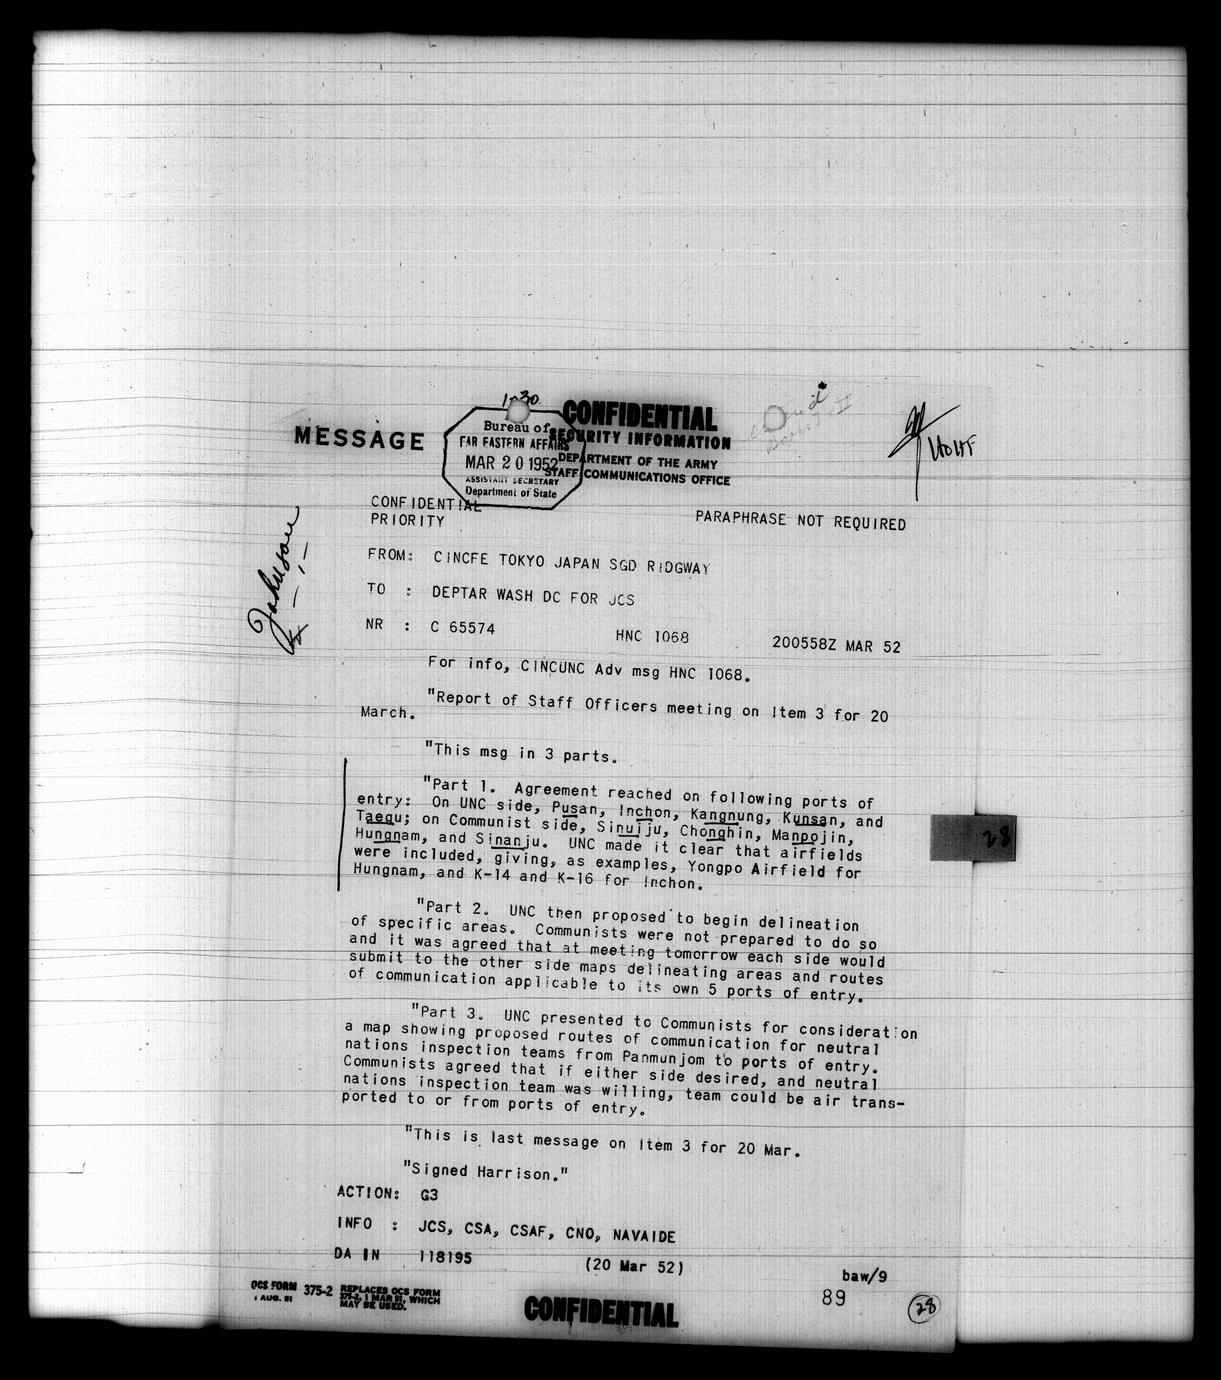 1030
CONFIDENTIAL
SECURITY INFORMATION
MESSAGE
Bureau of
FAR EASTERN AFFAIRS
MAR 20 1952
ASSISTANT SECRETARY
Department of State
DEPARTMENT OF THE ARMY
STAFF COMMUNICATIONS OFFICE
CONFIDENTIAL
PRIORITY
PARAPHRASE NOT REQUIRED
Johnson
FROM: CINCFE TOKYO JAPAN SGD RIDGWAY
TO : DEPTAR WASH DC FOR JCS
NR : C 65574 HNC 1068 200558Z MAR 52
For info, CINCUNC Adv msg HNC 1068.
"Report of Staff Officers meeting on Item 3 for 20
March.
"This msg in 3 parts.
"Part 1. Agreement reached on following ports of
entry: On UNC side, Pusan, Inchon, Kangnung, Kunsan, and
Taegu; on Communist side, Sinuiju, Chonghin, Manpojin,
Hungnam, and Sinanju. UNC made it clear that airfields
were included, giving, as examples, Yongpo Airfield for
Hungnam, and K-14 and K-16 for Inchon.
28
"Part 2. UNC then proposed to begin delineation
of specific areas. Communists were not prepared to do so
and it was agreed that at meeting tomorrow each side would
submit to the other side maps delineating areas and routes
of communication applicable to its own 5 ports of entry.
"Part 3. UNC presented to Communists for consideration
a map showing proposed routes of communication for neutral
nations inspection teams from Panmunjom to ports of entry.
Communists agreed that if either side desired, and neutral
nations inspection team was willing, team could be air trans-
ported to or from ports of entry.
"This is last message on Item 3 for 20 Mar.
"Signed Harrison."
ACTION: G3
INFO : JCS, CSA, CSAF, CNO, NAVAIDE
DA IN 118195 (20 Mar 52)
baw/9
OCS FORM 375-2 REPLACES OCS FORM
1 AUG. 51 375-2, 1 MAR 51, WHICH
MAY BE USED.
CONFIDENTIAL
89
28